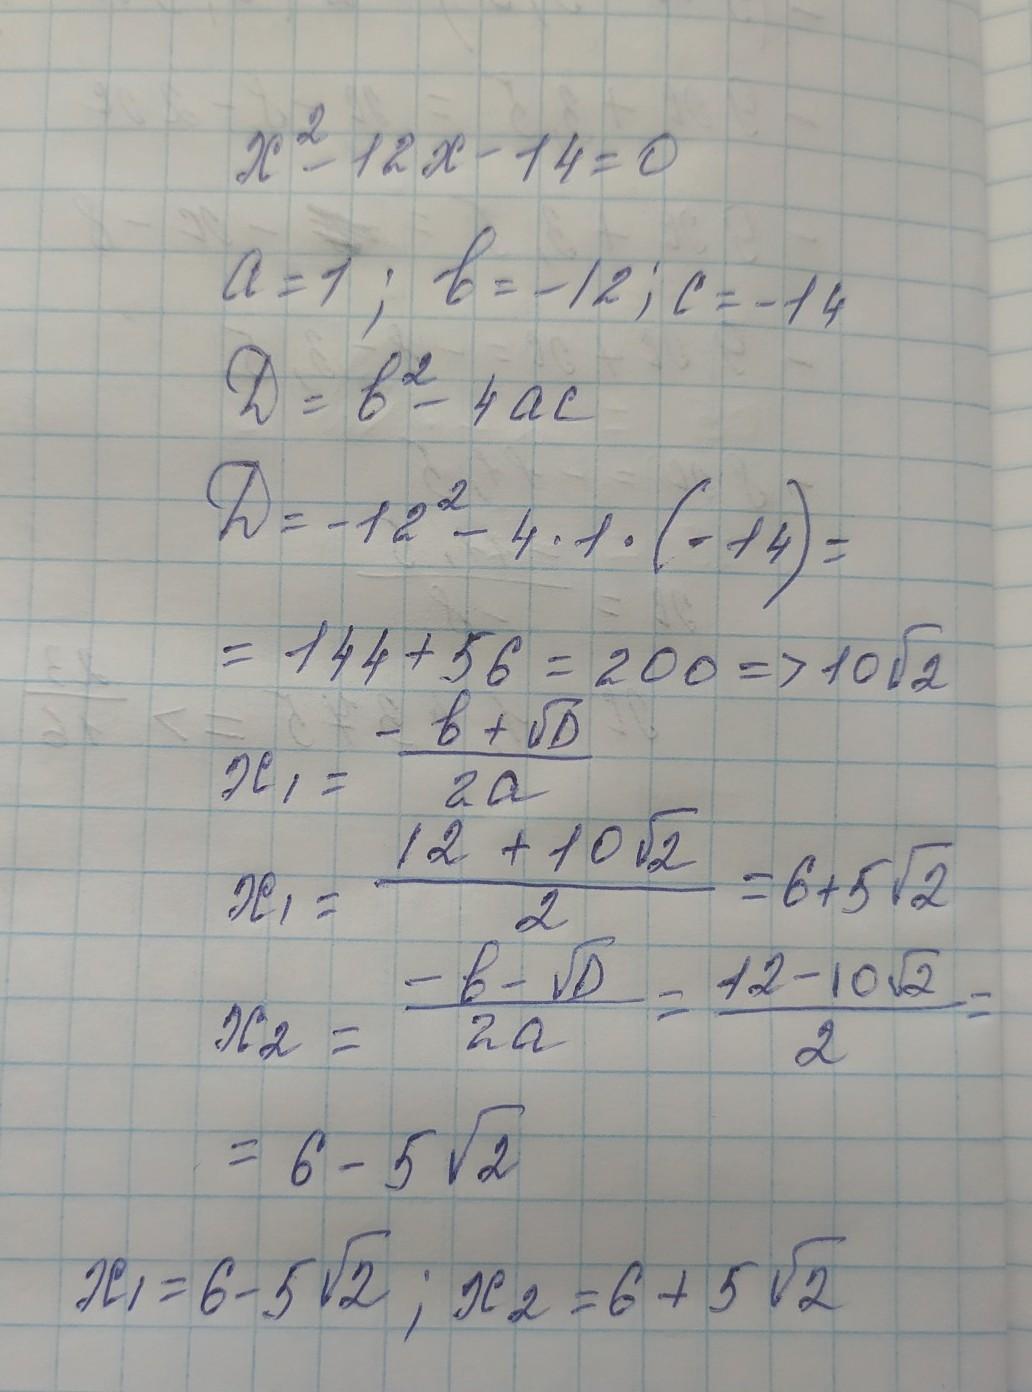 x² - 12x - 14 = 0
a = 1 ; b = -12 ; c = -14
D = b² - 4ac
D = -12² - 4 · 1 · (-14) =
= 144 + 56 = 200 => 10√2
x₁ = (-b + √D)/(2a)
x₁ = (12 + 10√2)/2 = 6 + 5√2
x₂ = (-b - √D)/(2a) = (12 - 10√2)/2 =
= 6 - 5√2
x₁ = 6 - 5√2 ; x₂ = 6 + 5√2